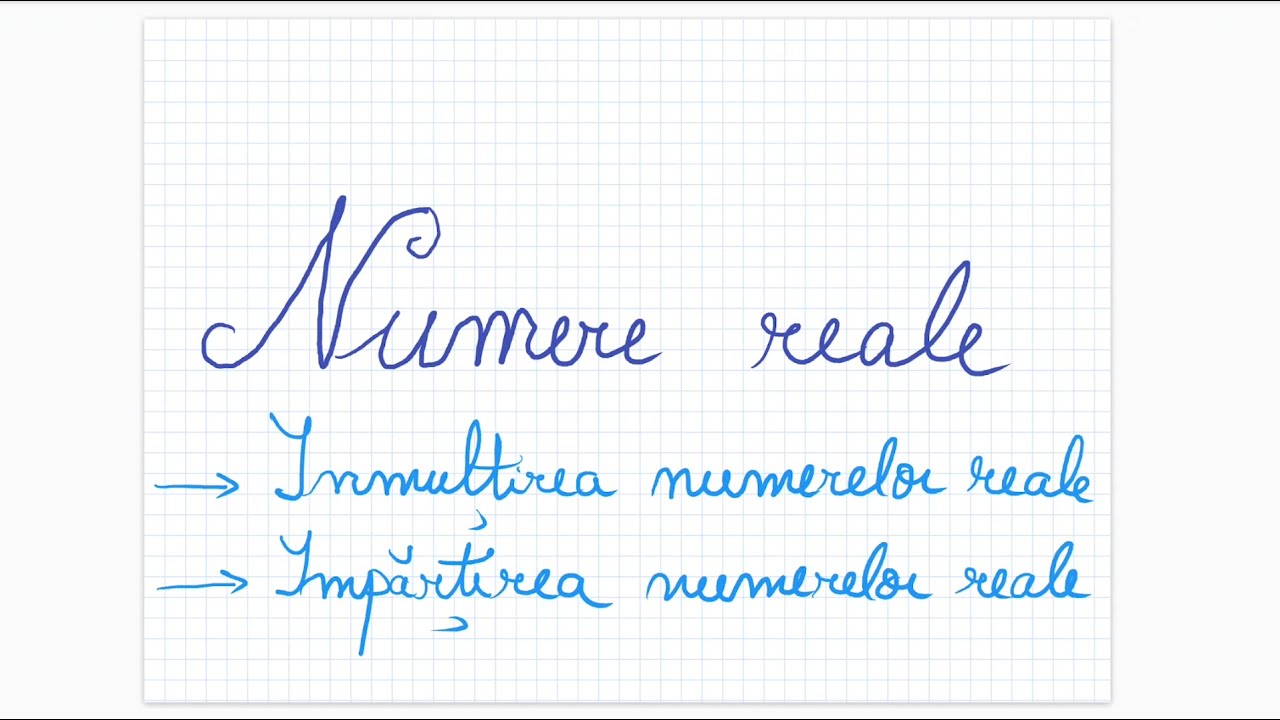 Numere reale
→ Inmulțirea numerelor reale
→ Impărțirea numerelor reale